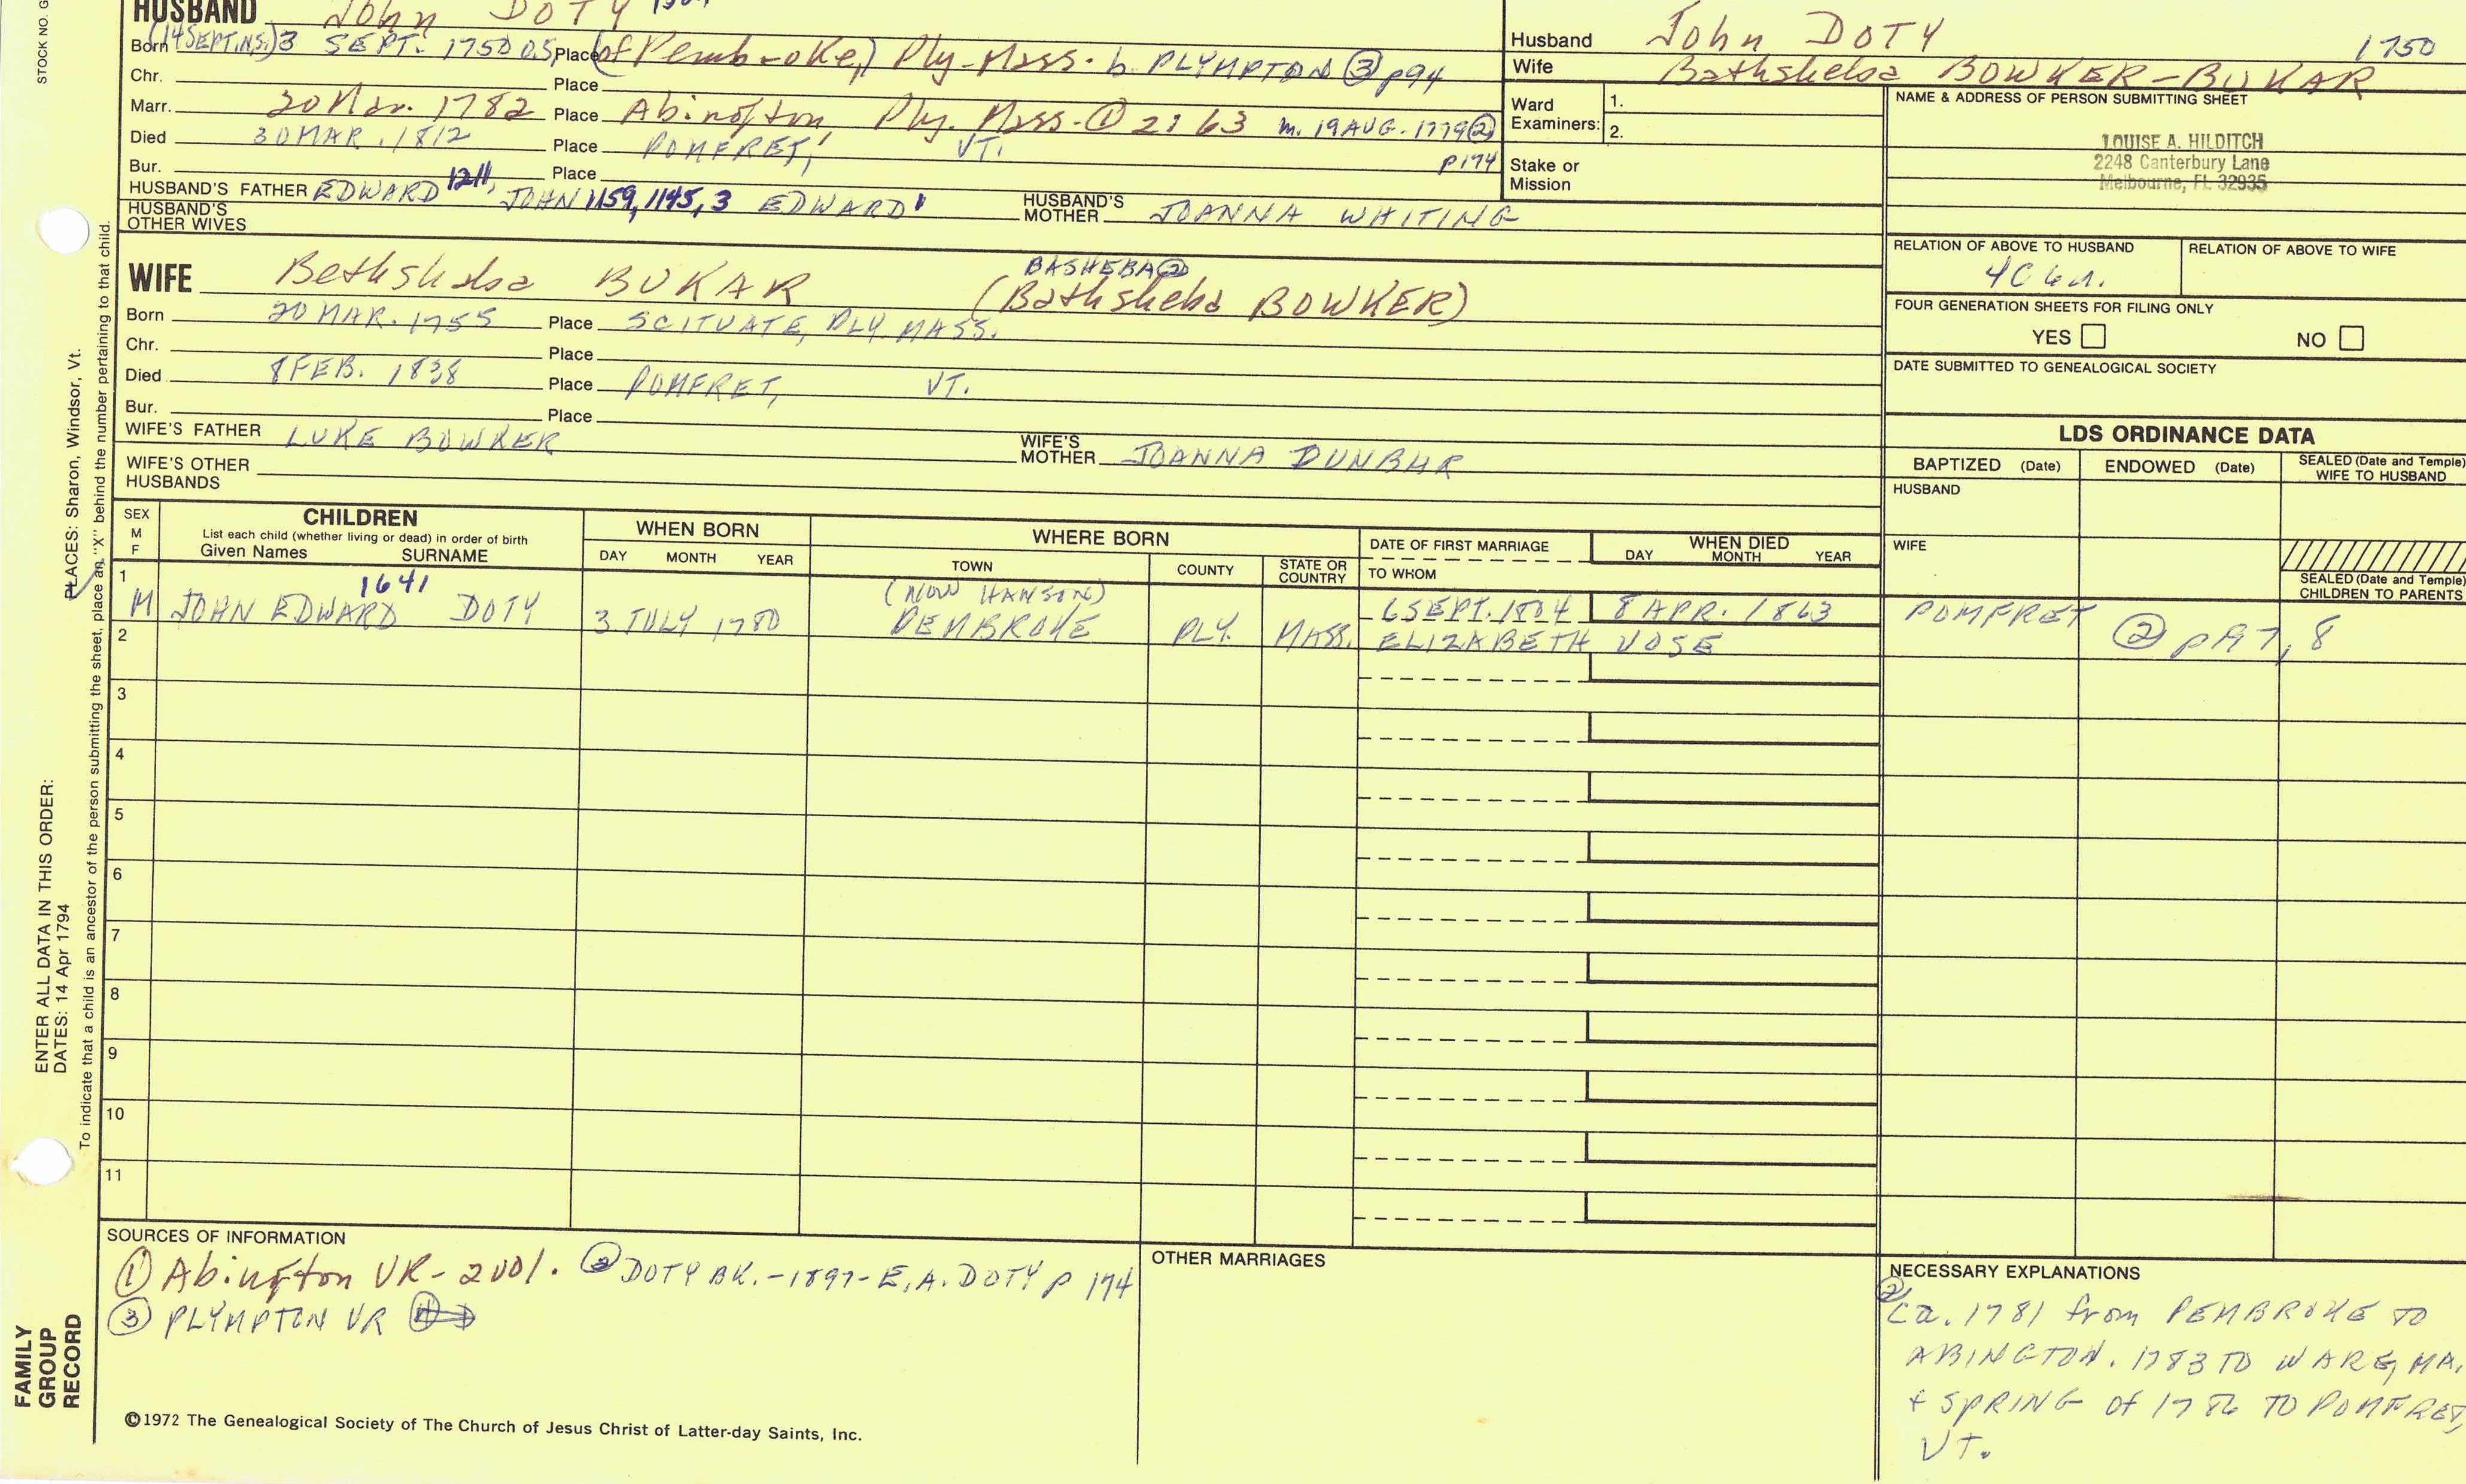 STOCK NO. G
HUSBAND John DOTY
Born (14 SEPT. N.S.) 3 SEPT. 1750 O.S. Place (of Pembroke,) Ply-Mass. b. PLYMPTON ③ p94
Chr. Place
Marr. 20 Mar. 1782 Place Abington, Ply. Mass. ① 2:63 m. 19 AUG. 1779 ②
p174
Died 30 MAR. 1812 Place POMFRET, VT.
Bur. Place
HUSBAND'S FATHER EDWARD 1211, JOHN 1159, 1145, 3 EDWARD 1
HUSBAND'S MOTHER JOANNA WHITING
HUSBAND'S OTHER WIVES
WIFE Bethsheba BUKAR (Bathsheba BOWKER)
BASHEBA ②
Born 20 MAR. 1755 Place SCITUATE, PLY. MASS.
Chr. Place
Died 8 FEB. 1838 Place POMFRET, VT.
Bur. Place
WIFE'S FATHER LUKE BOWKER
WIFE'S MOTHER JOANNA DUNBAR
WIFE'S OTHER HUSBANDS
Husband John DOTY 1750
Wife Bathsheba BOWKER-BUKAR
Ward Examiners: 1.
2.
Stake or Mission
NAME & ADDRESS OF PERSON SUBMITTING SHEET
LOUISE A. HILDITCH
2248 Canterbury Lane
Melbourne, FL 32935
RELATION OF ABOVE TO HUSBAND
RELATION OF ABOVE TO WIFE
4C 6r.
FOUR GENERATION SHEETS FOR FILING ONLY
YES NO
DATE SUBMITTED TO GENEALOGICAL SOCIETY
LDS ORDINANCE DATA
BAPTIZED (Date) ENDOWED (Date) SEALED (Date and Temple) WIFE TO HUSBAND
HUSBAND
WIFE
SEALED (Date and Temple) CHILDREN TO PARENTS
SEX M F
CHILDREN
List each child (whether living or dead) in order of birth
Given Names SURNAME
WHEN BORN
DAY MONTH YEAR
WHERE BORN
TOWN COUNTY STATE OR COUNTRY
DATE OF FIRST MARRIAGE
TO WHOM
WHEN DIED
DAY MONTH YEAR
1641 (NOW HANSON)
1 M JOHN EDWARD DOTY 3 JULY 1780 PEMBROKE PLY. MASS. 6 SEPT. 1804 8 APR. 1863 POMFRET ② p 197, 8
ELIZABETH VOSE
2
3
4
5
6
7
8
9
10
11
SOURCES OF INFORMATION
① Abington VR - 2001. ② DOTY BK. - 1897 - E. A. DOTY p 174
③ PLYMPTON VR
OTHER MARRIAGES
NECESSARY EXPLANATIONS
② Ca. 1781 from PEMBROKE TO
ABINGTON. 1783 TO WARE, MA.
+ SPRING of 1786 TO POMFRET,
VT.
©1972 The Genealogical Society of The Church of Jesus Christ of Latter-day Saints, Inc.
FAMILY GROUP RECORD
ENTER ALL DATA IN THIS ORDER:
DATES: 14 Apr 1794
PLACES: Sharon, Windsor, Vt.
To indicate that a child is an ancestor of the person submitting the sheet, place an "X" behind the number pertaining to that child.